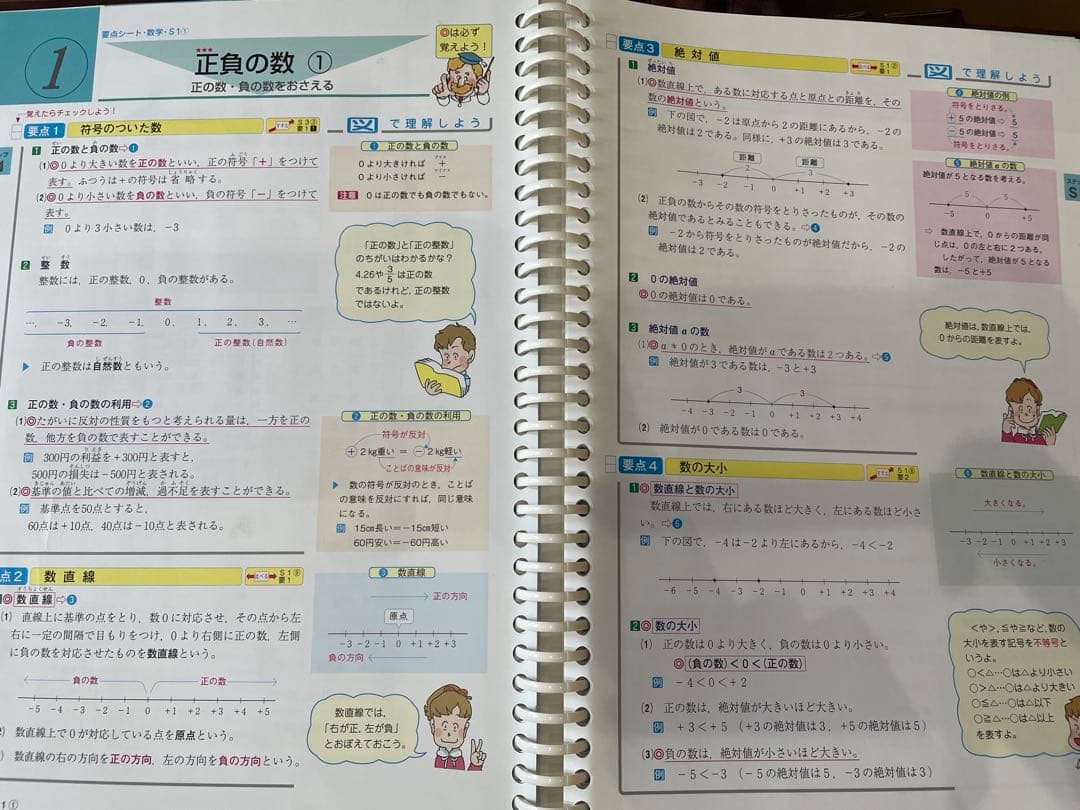 要点シート・数学・S1①
1
正負の数 ①
正の数・負の数をおさえる
◎は必ず
覚えよう!
覚えたらチェックしよう!
要点1 符号のついた数
図で理解しよう
1 正の数と負の数⇨❶
(1)◎0より大きい数を正の数といい,正の符号「+」をつけて
表す。ふつうは+の符号は省略する。
(2)◎0より小さい数を負の数といい,負の符号「-」をつけて
表す。
例 0より3小さい数は,-3
❶ 正の数と負の数
0より大きければ +
0より小さければ -
注意 0は正の数でも負の数でもない。
「正の数」と「正の整数」
のちがいはわかるかな?
4.26や3/5は正の数
であるけれど,正の整数
ではないよ。
2 整数
整数には,正の整数,0,負の整数がある。
整数
…, -3, -2, -1, 0, 1, 2, 3, …
負の整数 正の整数(自然数)
▶ 正の整数は自然数ともいう。
3 正の数・負の数の利用⇨❷
(1)◎たがいに反対の性質をもつと考えられる量は,一方を正の
数,他方を負の数で表すことができる。
例 300円の利益を+300円と表すと,
500円の損失は-500円と表される。
(2)◎基準の値と比べての増減,過不足を表すことができる。
例 基準点を50点とすると,
60点は+10点,40点は-10点と表される。
❷ 正の数・負の数の利用
符号が反対
+2kg重い = -2kg軽い
ことばの意味が反対
▶ 数の符号が反対のとき,ことば
の意味を反対にすれば,同じ意味
になる。
例 15cm長い=-15cm短い
60円安い=-60円高い
点2 数直線
◎数直線⇨❸
(1) 直線上に基準の点をとり,数0に対応させ,その点から左
右に一定の間隔で目もりをつけ,0より右側に正の数,左側
に負の数を対応させたものを数直線という。
負の数 正の数
-5 -4 -3 -2 -1 0 +1 +2 +3 +4 +5
数直線上で0が対応している点を原点という。
数直線の右の方向を正の方向,左の方向を負の方向という。
❸ 数直線
正の方向
原点
-3 -2 -1 0 +1 +2 +3
負の方向
数直線では,
「右が正,左が負」
とおぼえておこう。
1①
要点3 絶対値
図で理解しよう
1 絶対値
(1)◎数直線上で,ある数に対応する点と原点との距離を,その
数の絶対値という。
例 下の図で,-2は原点から2の距離にあるから,-2の
絶対値は2である。同様に,+3の絶対値は3である。
距離 距離
2 3
-3 -2 -1 0 +1 +2 +3
(2) 正負の数からその数の符号をとりさったものが,その数の
絶対値であるとみることもできる。⇨❹
例 -2から符号をとりさったものが絶対値だから,-2の
絶対値は2である。
❹ 絶対値の例
符号をとりさる。
+5の絶対値⇨5
-5の絶対値⇨5
符号をとりさる。
❺ 絶対値aの数
絶対値が5となる数を考える。
5 5
-5 0 +5
⇨ 数直線上で,0からの距離が同
じ点は,0の左と右に2つある。
したがって,絶対値が5となる
数は,-5と+5
2 0の絶対値
◎0の絶対値は0である。
3 絶対値aの数
(1)◎a≠0のとき,絶対値がaである数は2つある。⇨❺
例 絶対値が3である数は,-3と+3
3 3
-4 -3 -2 -1 0 +1 +2 +3 +4
(2) 絶対値が0である数は0である。
絶対値は,数直線上では,
0からの距離を表すよ。
要点4 数の大小
1◎数直線と数の大小
数直線上では,右にある数ほど大きく,左にある数ほど小さ
い。⇨❻
例 下の図で,-4は-2より左にあるから,-4<-2
-6 -5 -4 -3 -2 -1 0 +1 +2 +3 +4
❻ 数直線と数の大小
大きくなる。
-3 -2 -1 0 +1 +2 +3
小さくなる。
2◎数の大小
(1) 正の数は0より大きく,負の数は0より小さい。
◎(負の数)<0<(正の数)
例 -4<0<+2
(2) 正の数は,絶対値が大きいほど大きい。
例 +3<+5 (+3の絶対値は3,+5の絶対値は5)
(3)◎負の数は,絶対値が小さいほど大きい。
例 -5<-3 (-5の絶対値は5,-3の絶対値は3)
<や>,≦や≧など,数の
大小を表す記号を不等号と
いうよ。
○<△…○は△より小さい
○>△…○は△より大きい
○≦△…○は△以下
○≧△…○は△以上
を表すよ。